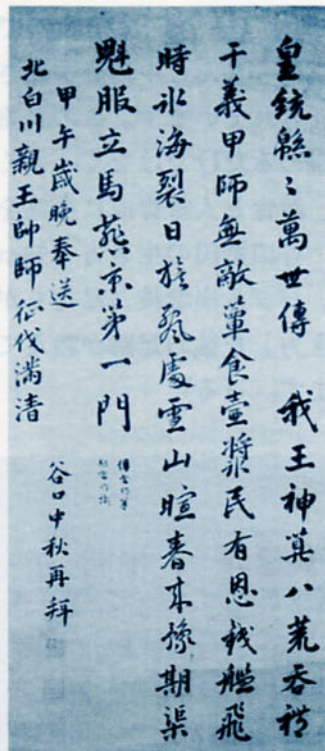 皇統緜〻萬世傳 我王神算八荒吞禮
干義甲師無敵簞食壺漿民有恩鉄艦飛
時氷海裂日旌飜處雪山暄春来豫期渠
魁服立馬燕京第一門
傳當作尊
甲午歳晩奉送
北白川親王帥師征伐滿清
谷口中秋再拜